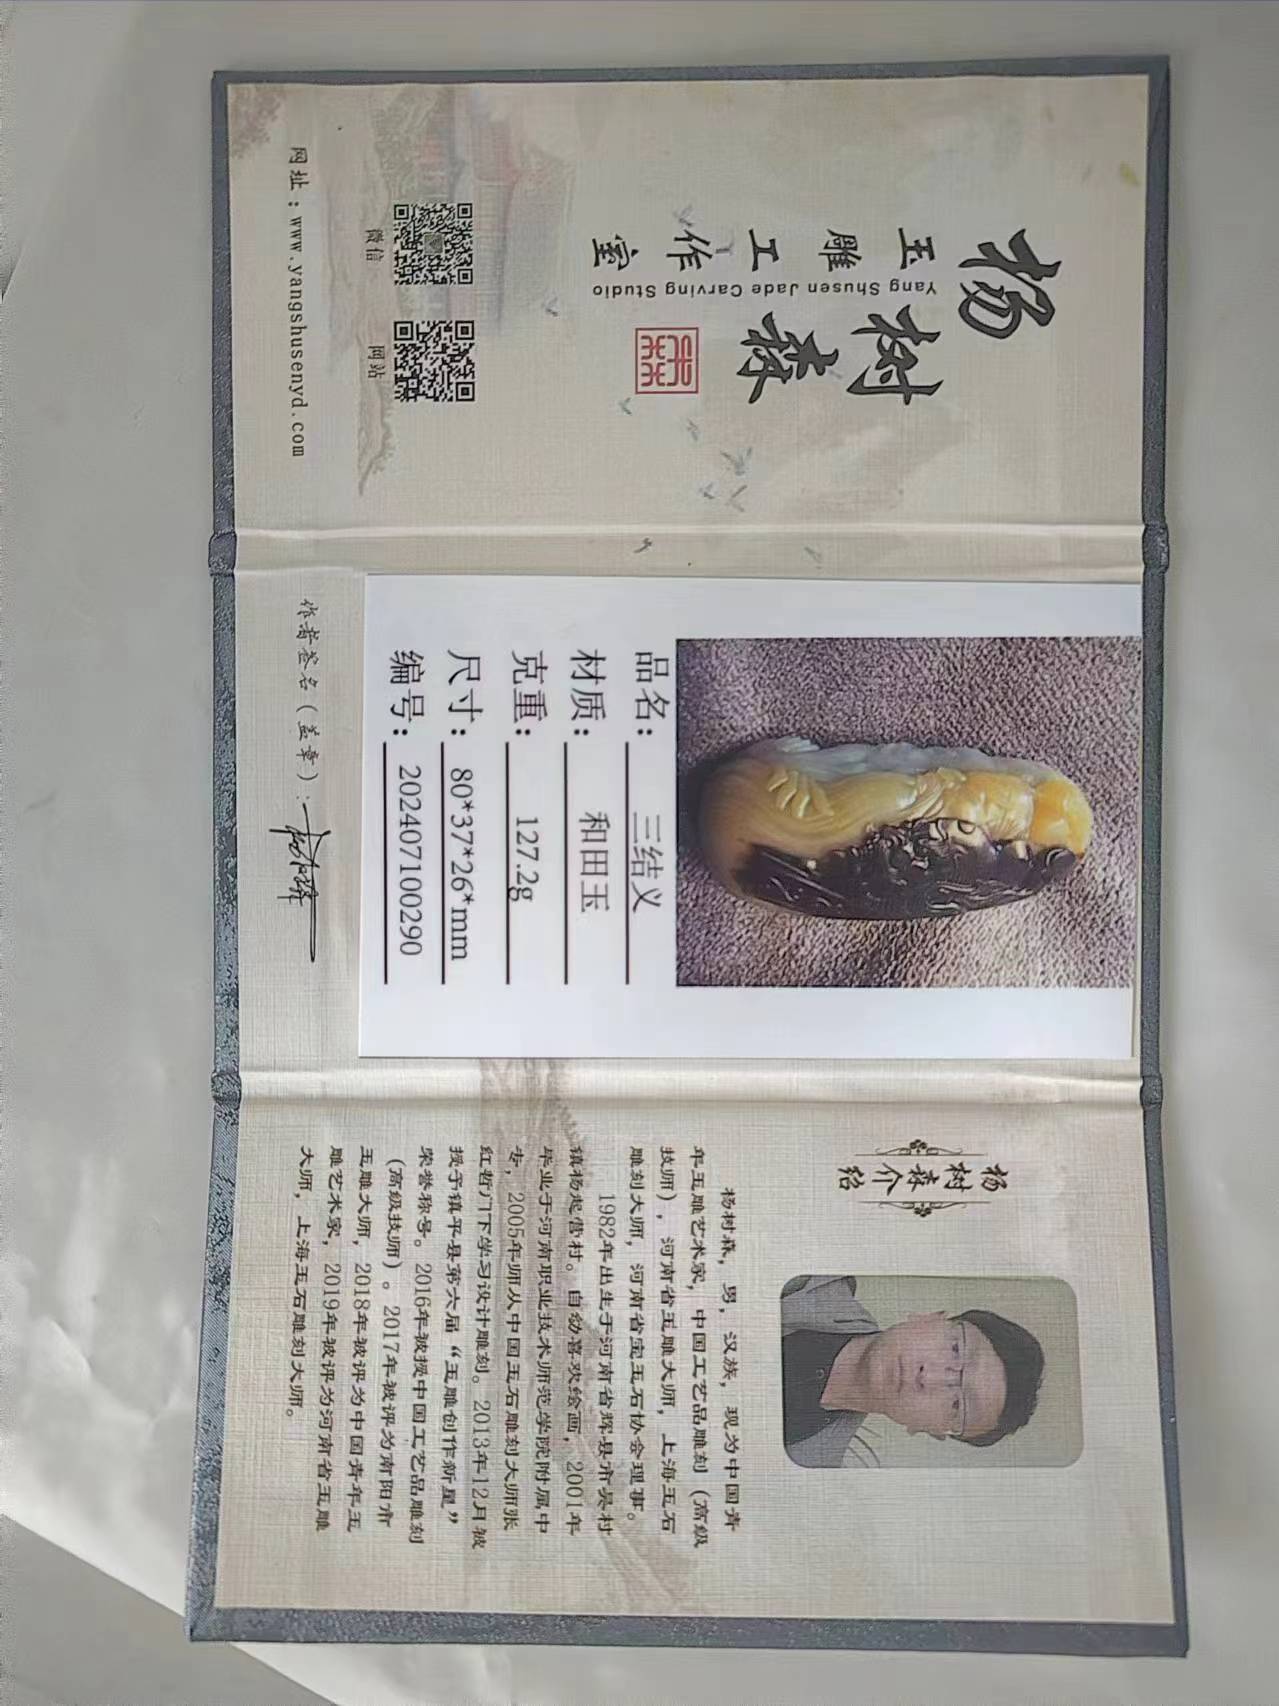 杨树森
玉雕工作室
Yang Shusen Jade Carving Studio
微信
网站
网址：www.yangshusenyd.com
品名：三结义
材质：和田玉
克重：127.2g
尺寸：80*37*26*mm
编号：202407100290
作者签名（盖章）：
杨树森介绍
杨树森，男，汉族，现为中国青
年玉雕艺术家，中国工艺品雕刻（高级
技师），河南省玉雕大师，上海玉石
雕刻大师，河南省宝玉石协会理事。
1982年出生于河南省辉县市吴村
镇杨起营村。自幼喜欢绘画，2001年
毕业于河南职业技术师范学院附属中
专，2005年师从中国玉石雕刻大师张
红哲门下学习设计雕刻。2013年12月被
授予镇平县第六届“玉雕创作新星”
荣誉称号。2016年被授中国工艺品雕刻
（高级技师）。2017年被评为南阳市
玉雕大师，2018年被评为中国青年玉
雕艺术家，2019年被评为河南省玉雕
大师，上海玉石雕刻大师。